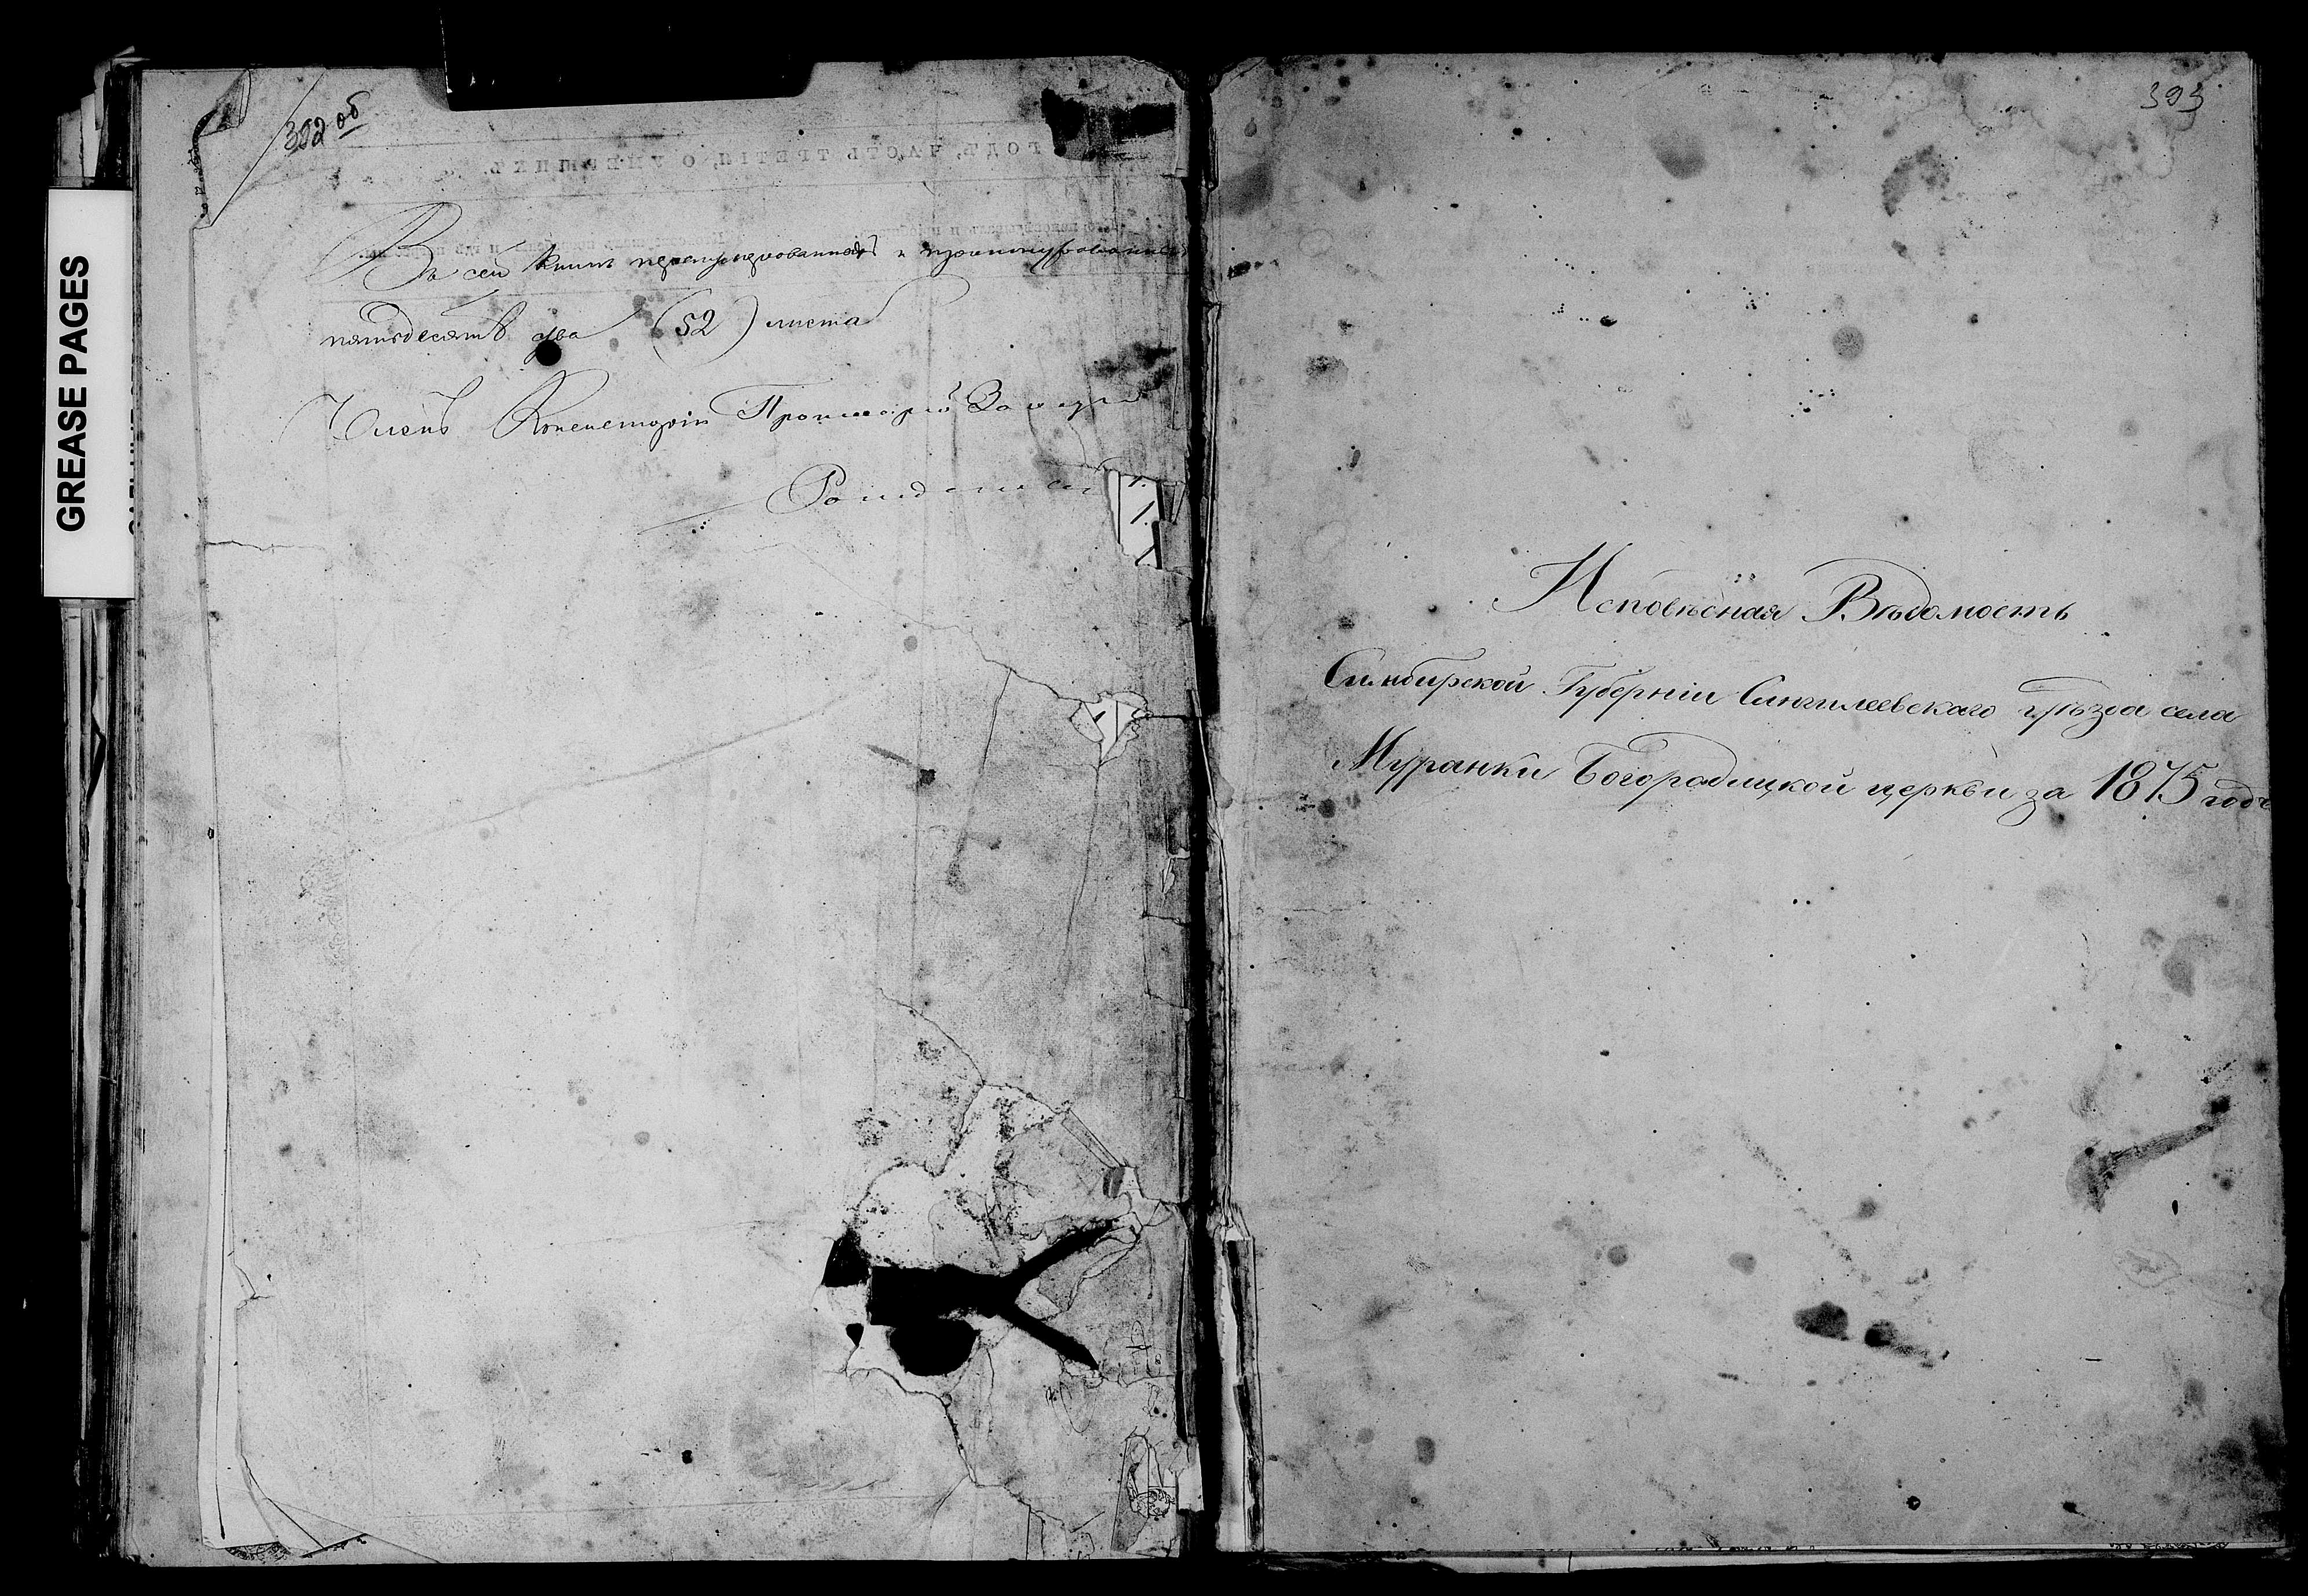 GREASE PAGES
392 об
ГОДЪ, ЧАСТЬ ТРЕТІЯ, О УМЕРШИХЪ.
Въ сей книгѣ перенумерованныхъ и прошнурованныхъ
пятьдесятъ два (52) листа
Членъ Консисторіи Протоіерей
393
Исповѣсная Вѣдомость
Симбирской Губерніи Сингилеевскаго уѣзда села
Муранки Богородицкой церкви за 1875 годъ